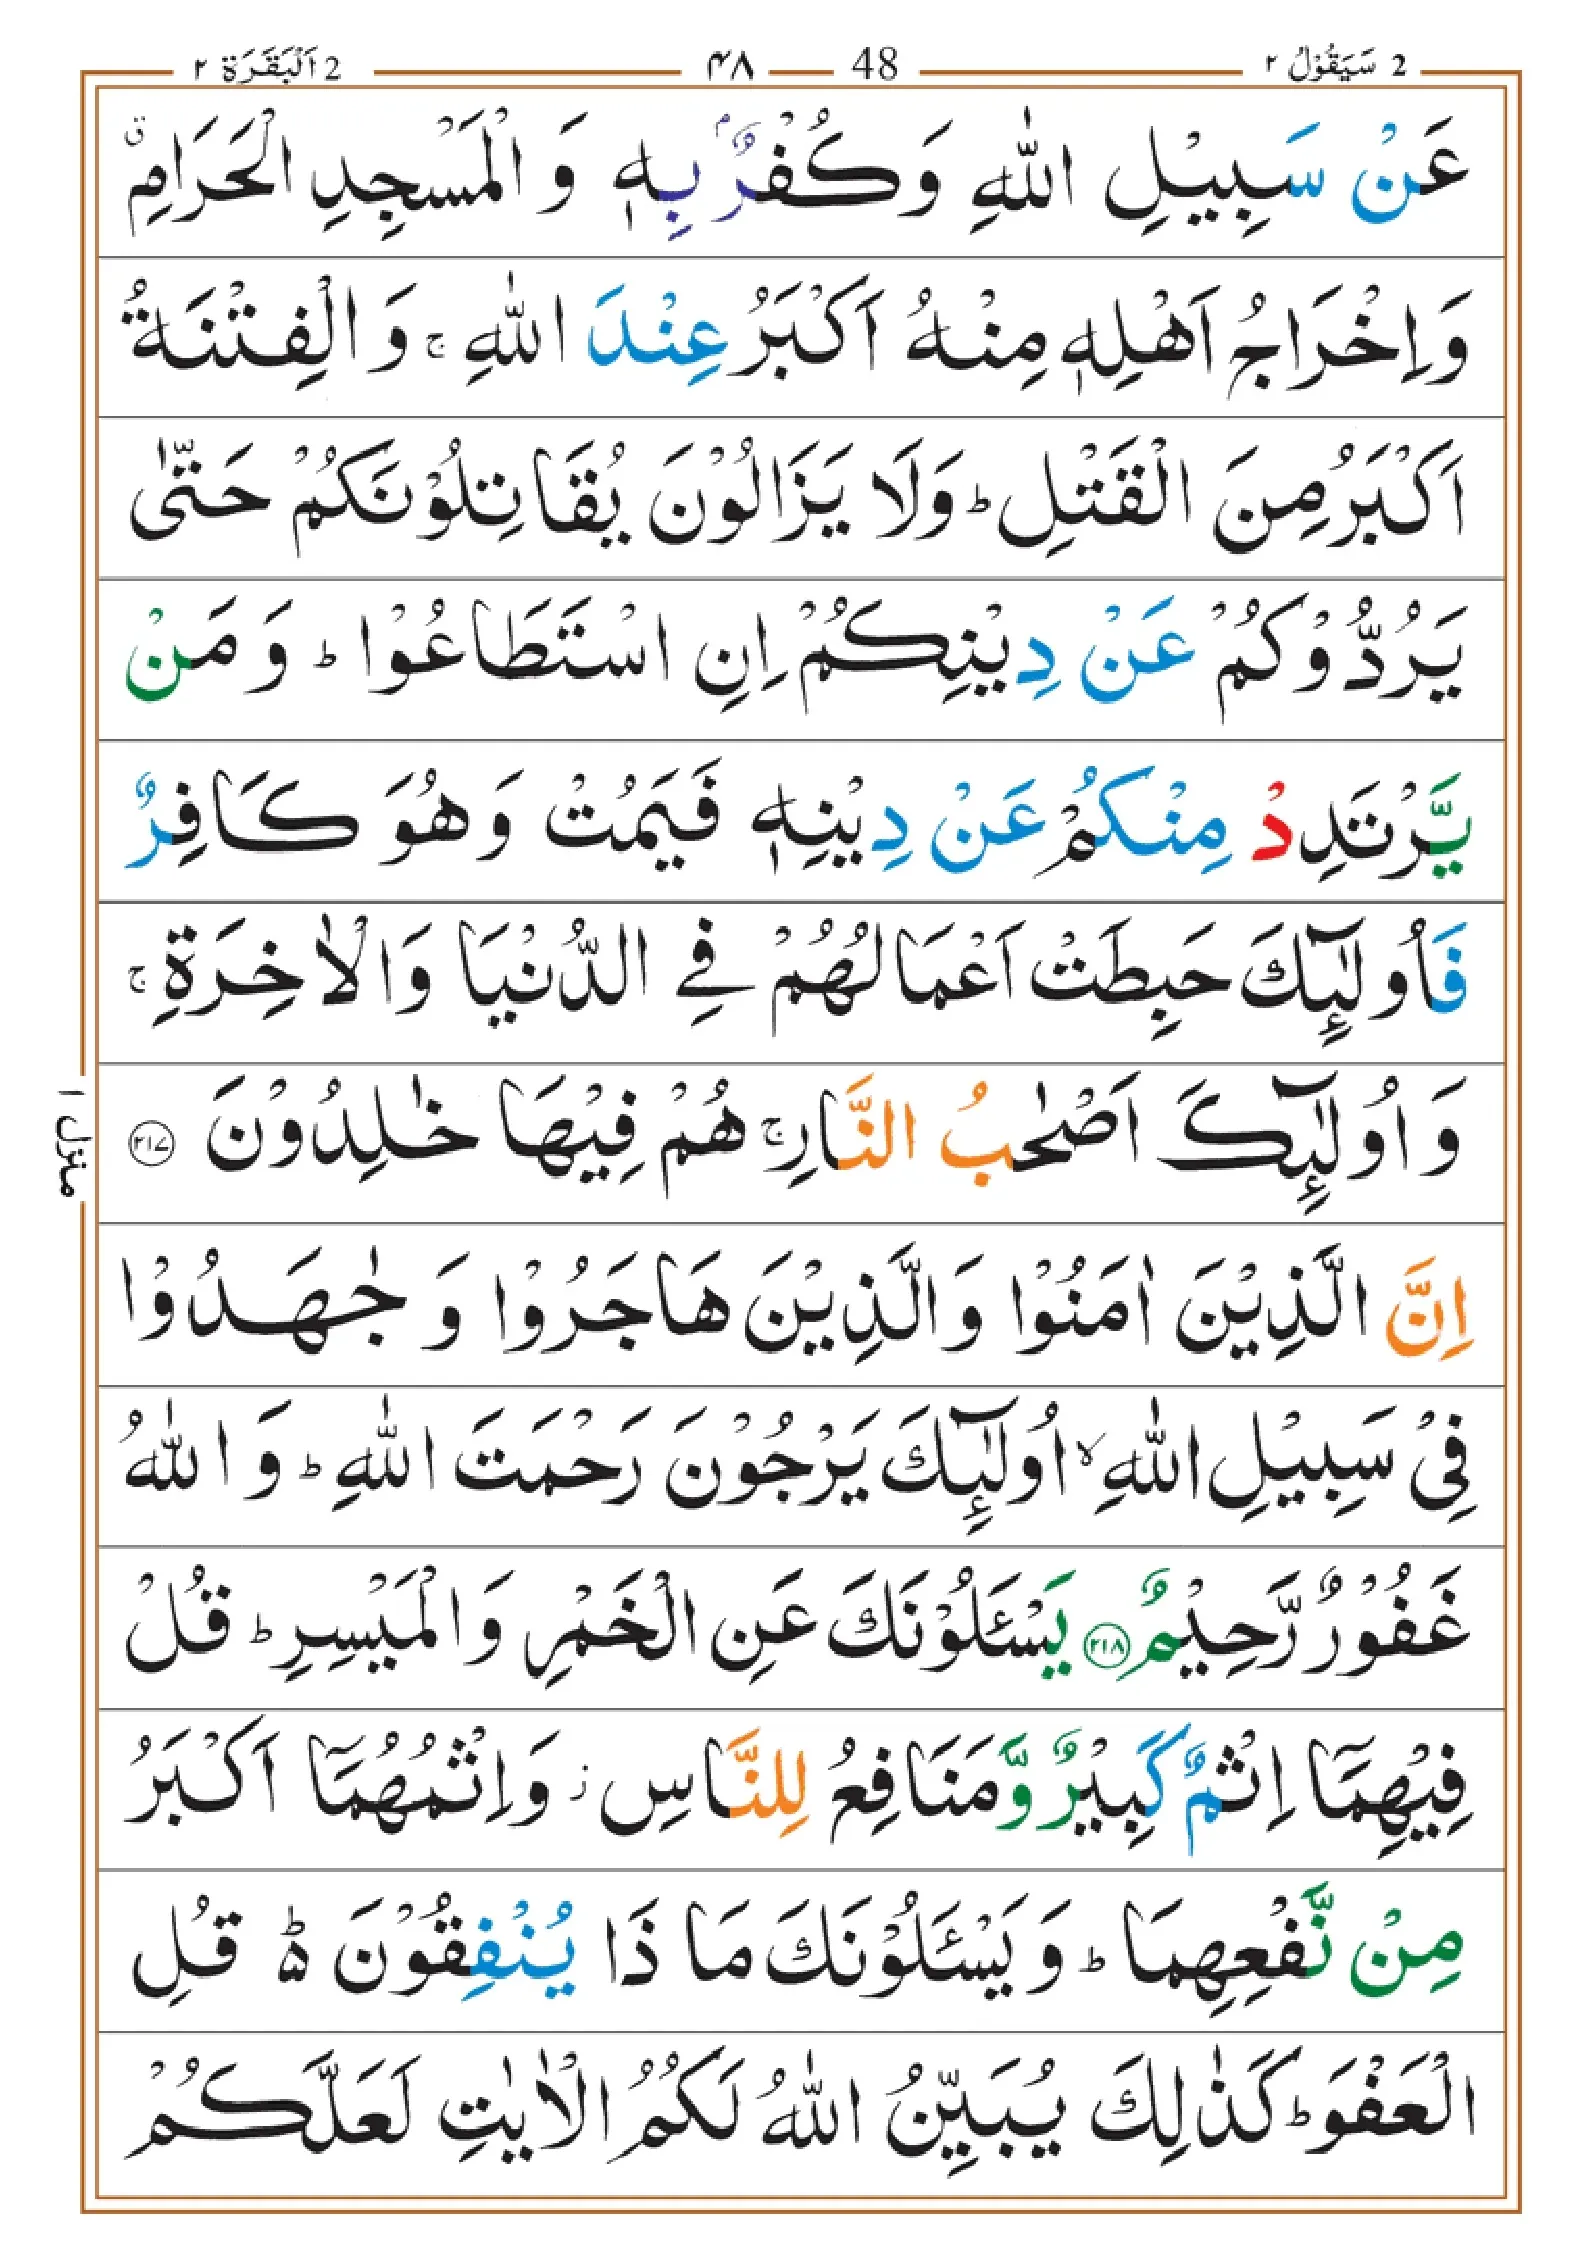 2 سَيَقُوْلُ ٢
48 ۴۸
2 اَلْبَقَرَة ٢
عَنْ سَبِيْلِ اللّٰهِ وَكُفْرٌۢ بِهٖ وَالْمَسْجِدِ الْحَرَامِ ق
وَاِخْرَاجُ اَهْلِهٖ مِنْهُ اَكْبَرُ عِنْدَ اللّٰهِ ۚ وَالْفِتْنَةُ
اَكْبَرُ مِنَ الْقَتْلِ ؕ وَلَا يَزَالُوْنَ يُقَاتِلُوْنَكُمْ حَتّٰى
يَرُدُّوْكُمْ عَنْ دِيْنِكُمْ اِنِ اسْتَطَاعُوْا ؕ وَمَنْ
يَّرْتَدِدْ مِنْكُمْ عَنْ دِيْنِهٖ فَيَمُتْ وَهُوَ كَافِرٌ
فَاُولٰٓئِكَ حَبِطَتْ اَعْمَالُهُمْ فِي الدُّنْيَا وَالْاٰخِرَةِ ۚ
وَاُولٰٓئِكَ اَصْحٰبُ النَّارِ ۚ هُمْ فِيْهَا خٰلِدُوْنَ ٢١٧
اِنَّ الَّذِيْنَ اٰمَنُوْا وَالَّذِيْنَ هَاجَرُوْا وَجٰهَدُوْا
فِيْ سَبِيْلِ اللّٰهِ ۙ اُولٰٓئِكَ يَرْجُوْنَ رَحْمَتَ اللّٰهِ ؕ وَاللّٰهُ
غَفُوْرٌ رَّحِيْمٌ ٢١٨ يَسْـَٔلُوْنَكَ عَنِ الْخَمْرِ وَالْمَيْسِرِ ؕ قُلْ
فِيْهِمَاۤ اِثْمٌ كَبِيْرٌ وَّمَنَافِعُ لِلنَّاسِ ز وَاِثْمُهُمَاۤ اَكْبَرُ
مِنْ نَّفْعِهِمَا ؕ وَيَسْـَٔلُوْنَكَ مَا ذَا يُنْفِقُوْنَ ؕ۬ قُلِ
الْعَفْوَ ؕ كَذٰلِكَ يُبَيِّنُ اللّٰهُ لَكُمُ الْاٰيٰتِ لَعَلَّكُمْ
منزل ١